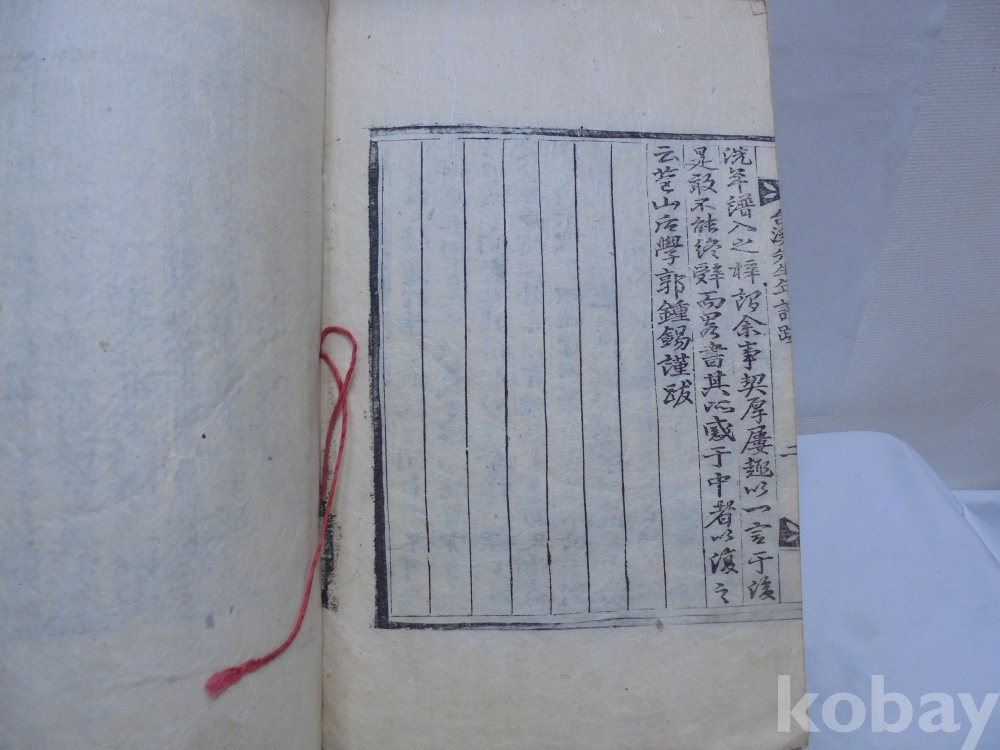 台溪先生年譜跋
二
洗年譜入之梓謂余事契厚屢趣以一言于後
是敢不能終辭而畧書其所感于中者以復之
云苞山后學郭鍾錫謹跋
kobay